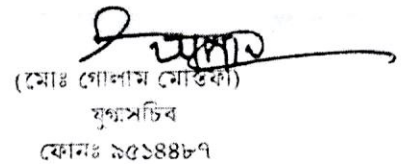 (মোঃ গোলাম মোস্তফা)
যুগ্মসচিব
ফোনঃ ৯৫১৪৪৮৭